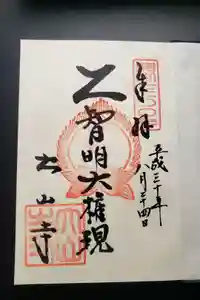 奉拝
平成三十年
八月二十四日
智明大権現
大山寺